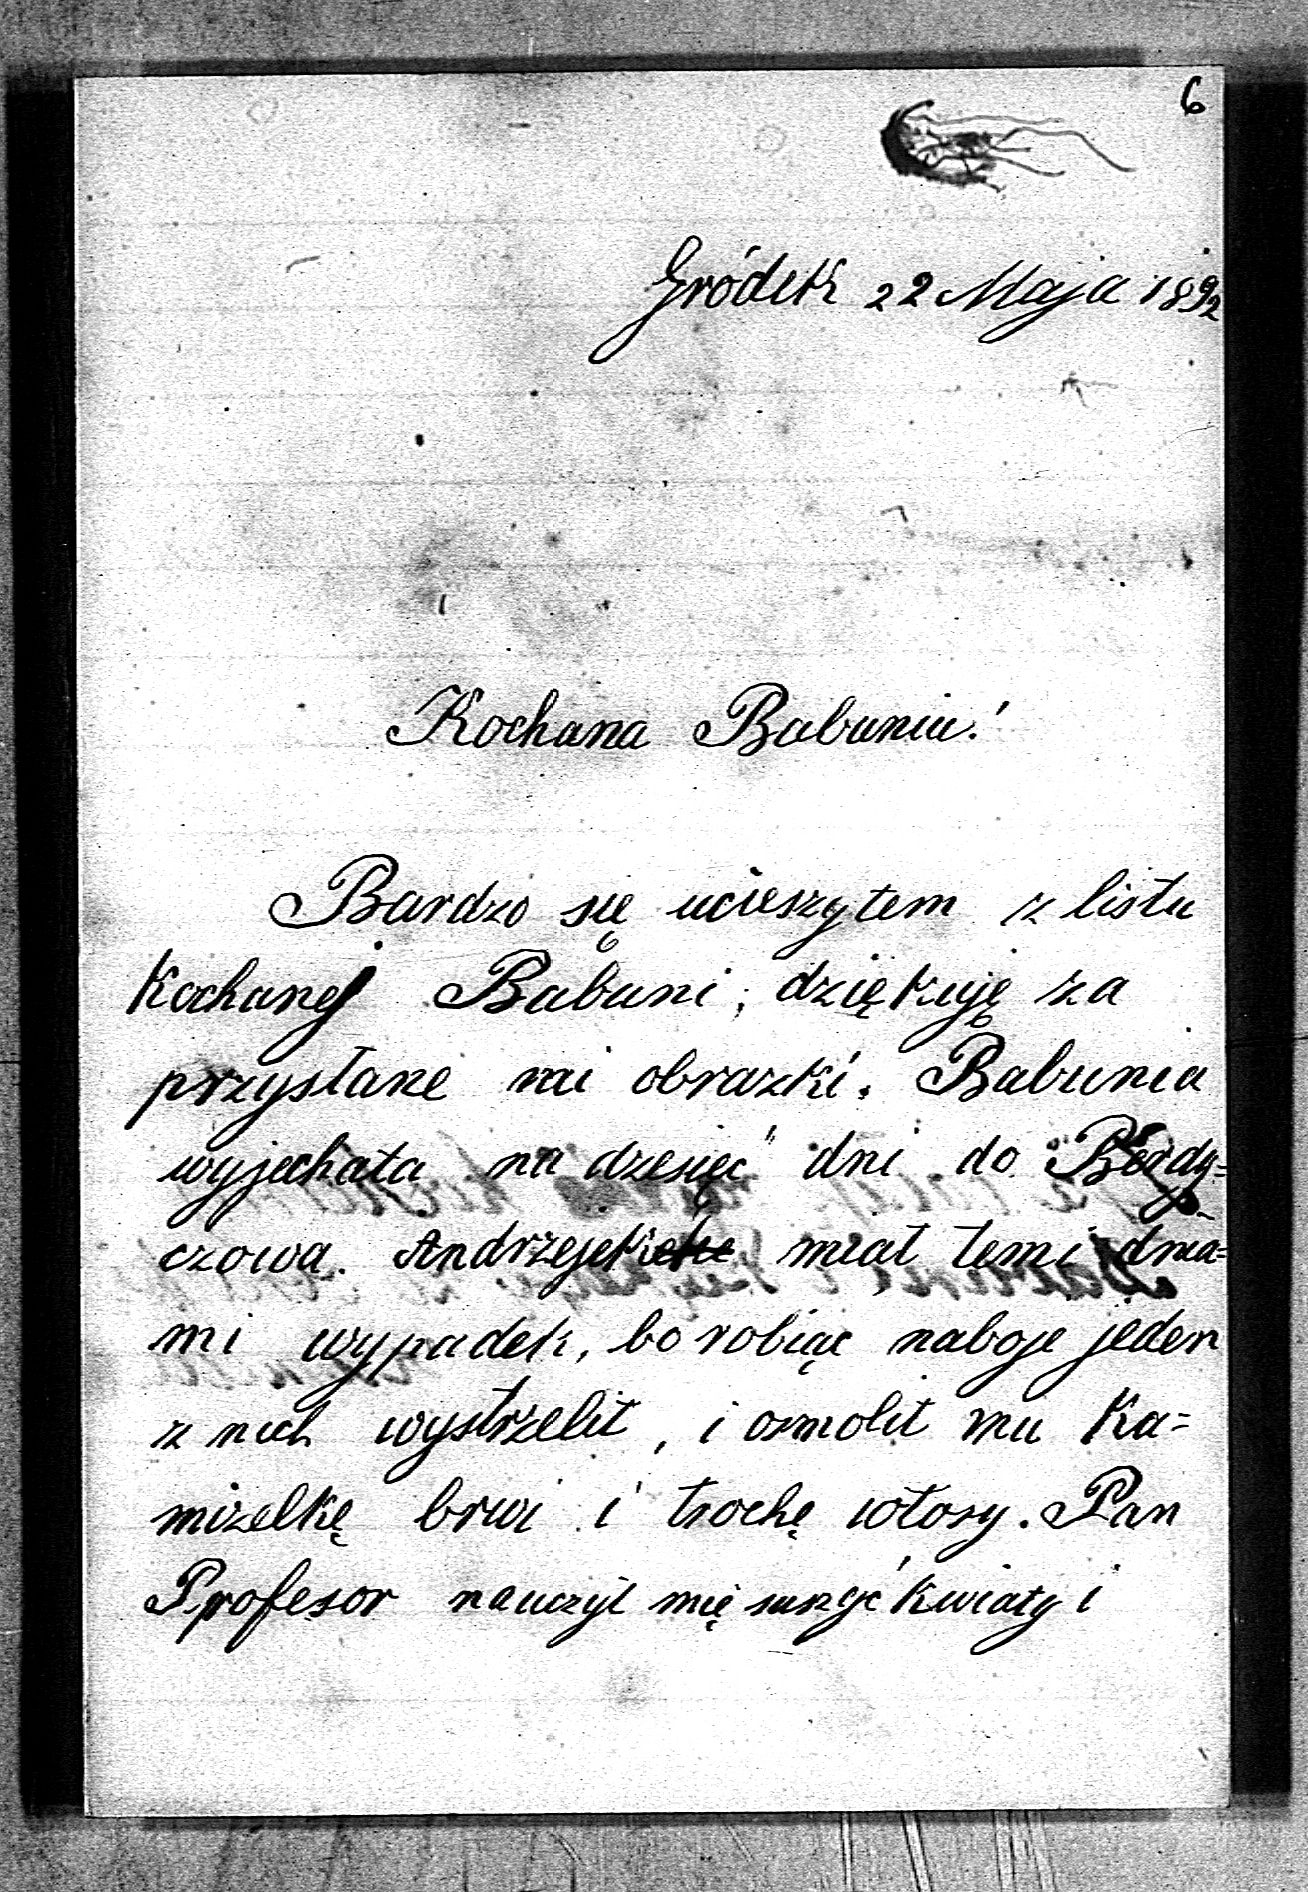 6
Gródek 22 Maja 1892
Kochana Babuniu!
Bardzo się ucieszyłem z listu
Kochanej Babuni, dziękuję za
przysłane mi obrazki. Babunia
wyjechała na dzesięć dni do Berdy=
czowa. Andrzejek miał temi dnia=
mi wypadek, bo robiąc naboje jeden
z nich wystrzelił, i osmolił mu Ka=
mizelkę brwi i trochę włosy. Pan
Profesor nauczył mię suszyć kwiaty i